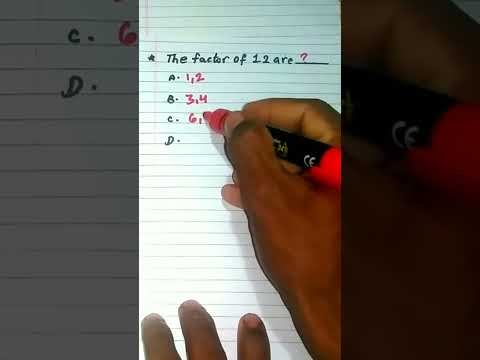 * The factor of 12 are ?
A. 1,2
B. 3,4
C. 6,
D.
C. 6
D.
CE